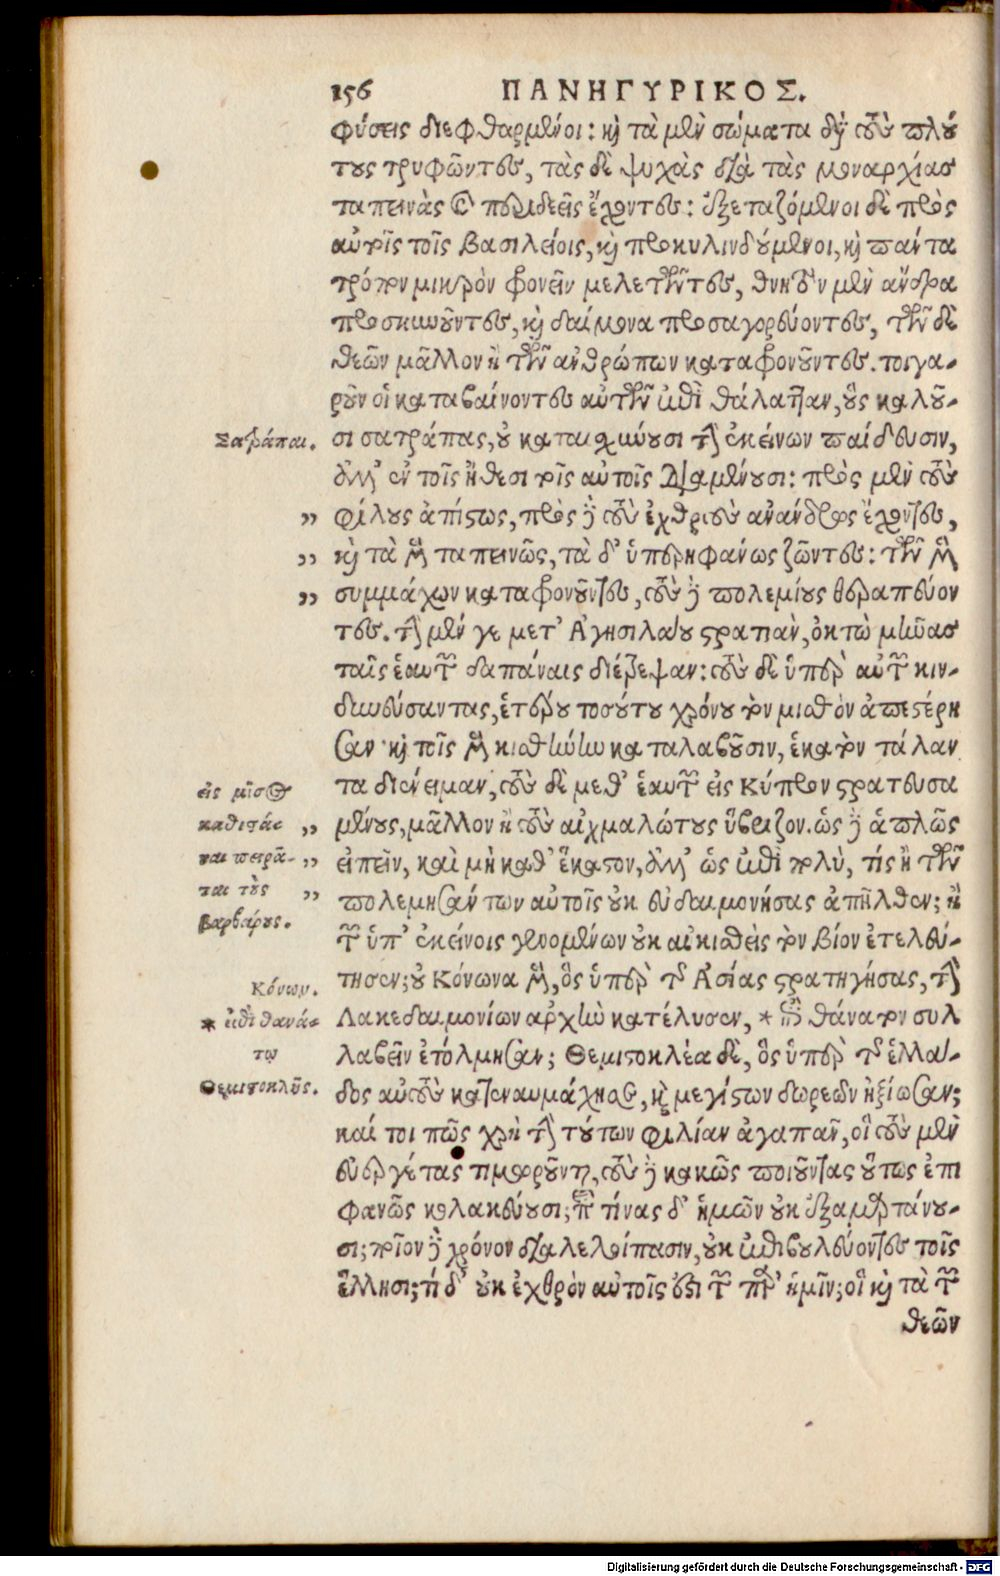 156 ΠΑΝΗΓΥΡΙΚΟΣ.
φύσεις διεφθαρμένοι: καὶ τὰ μὲν σώματα διὰ τοὺς πλού
τους τρυφῶντες, τὰς δὲ ψυχὰς διὰ τὰς μοναρχίας
ταπεινὰς καὶ περιδεεῖς ἔχοντες: ἐξεταζόμενοι δὲ πρὸς
αὐτοῖς τοῖς βασιλείοις, καὶ προκυλινδούμενοι, καὶ πάντα
τρόπον μικρὸν φρονεῖν μελετῶντες, θνητὸν μὲν ἄνδρα
προσκυνοῦντες, καὶ δαίμονα προσαγορεύοντες, τῶν δὲ
θεῶν μᾶλλον ἢ τῶν ἀνθρώπων καταφρονοῦντες. τοιγα-
ροῦν οἱ καταβαίνοντες αὐτῶν ἐπὶ θάλατταν, οὓς καλοῦ-
Σατράπαι. σι σατράπας, οὐ καταισχύνουσι τὴν ἐκείνων παίδευσιν,
ἀλλ' ἐν τοῖς ἤθεσι τοῖς αὐτοῖς διαμένουσι: πρὸς μὲν τοὺς
„ φίλους ἀπίστως, πρὸς δὲ τοὺς ἐχθροὺς ἀνάνδρως ἔχοντες,
„ καὶ τὰ μὲν ταπεινῶς, τὰ δ' ὑπερηφάνως ζῶντες: τῶν μὲν
„ συμμάχων καταφρονοῦντες, τοὺς δὲ πολεμίους θεραπεύον
τες. τὴν μέν γε μετ' Ἀγησιλάου στρατιὰν, ὀκτὼ μῆνας
ταῖς ἑαυτῶν δαπάναις διέθρεψαν: τοὺς δὲ ὑπὲρ αὐτῶν κιν-
δυνεύσαντας, ἑτέρου τοσούτου χρόνου τὸν μισθὸν ἀπεστέρη
σαν· καὶ τοῖς μὲν κισθήνην καταλαβοῦσιν, ἑκατὸν τάλαν
εἰς μῖσος τα διένειμαν, τοὺς δὲ μεθ' ἑαυτῶν εἰς Κύπρον στρατευσα
καθιστάς „ μένους, μᾶλλον ἢ τοὺς αἰχμαλώτους ὕβριζον. ὡς δὲ ἁπλῶς
ται πειρᾶ- „ εἰπεῖν, καὶ μὴ καθ' ἕκαστον, ἀλλ' ὡς ἐπὶ πολὺ, τίς ἢ τῶν
ται τοὺς „ πολεμησάντων αὐτοῖς οὐκ εὐδαιμονήσας ἀπῆλθεν; ἢ
βαρβάρους. τῶν ὑπ' ἐκείνοις γενομένων οὐκ αἰκισθεὶς τὸν βίον ἐτελεύ-
τησεν; οὐ Κόνωνα μὲν, ὃς ὑπὲρ τῆς Ἀσίας στρατηγήσας, τὴν
Κόνων.
* ἐπὶ θανά- Λακεδαιμονίων ἀρχὴν κατέλυσεν, * ἐπὶ θάνατον συλ
τῳ λαβεῖν ἐτόλμησαν; Θεμιστοκλέα δὲ, ὃς ὑπὲρ τῆς ἑλλά-
Θεμιστοκλῆς. δος αὐτοὺς κατεναυμάχησε, καὶ μεγίστων δωρεῶν ἠξίωσαν;
καί τοι πῶς χρὴ τὴν τούτων φιλίαν ἀγαπᾶν, οἳ τοὺς μὲν
εὐεργέτας τιμωροῦνται, τοὺς δὲ κακῶς ποιοῦντας οὕτως ἐπι
φανῶς κολακεύουσι; περὶ τίνας δ' ἡμῶν οὐκ ἐξαμαρτάνου-
σι; ποῖον δὲ χρόνον διαλελοίπασιν, οὐκ ἐπιβουλεύοντες τοῖς
ἕλλησι; τί δ' οὐκ ἐχθρὸν αὐτοῖς ἐστι τῶν παρ' ἡμῖν; οἳ καὶ τὰ τῶν
θεῶν
Digitalisierung gefördert durch die Deutsche Forschungsgemeinschaft - DFG